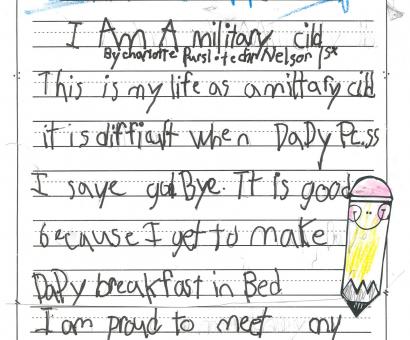 I Am A military cild
By charlotte Nelson 1st
This is my life as a milltary cild
it is difficult when DaDy Pc.ss
I saye gooBye. It is good
because I get to make
DaDy breakfast in Bed
I am proud to meet my